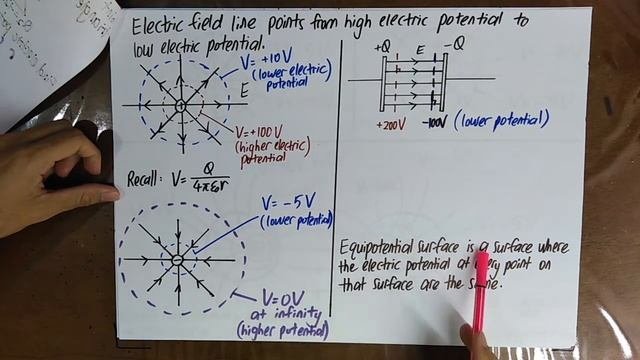 Electric field line points from high electric potential to
low electric potential.
V= +10V
(lower electric
potential
E
V=+100V
(higher electric
potential)
Recall: V= Q
4πε₀r
V= -5V
(lower potential)
V=0V
at infinity
(higher potential)
+Q E -Q
+200V -100V (lower potential)
Equipotential surface is a surface where
the electric potential at every point on
that surface are the same.